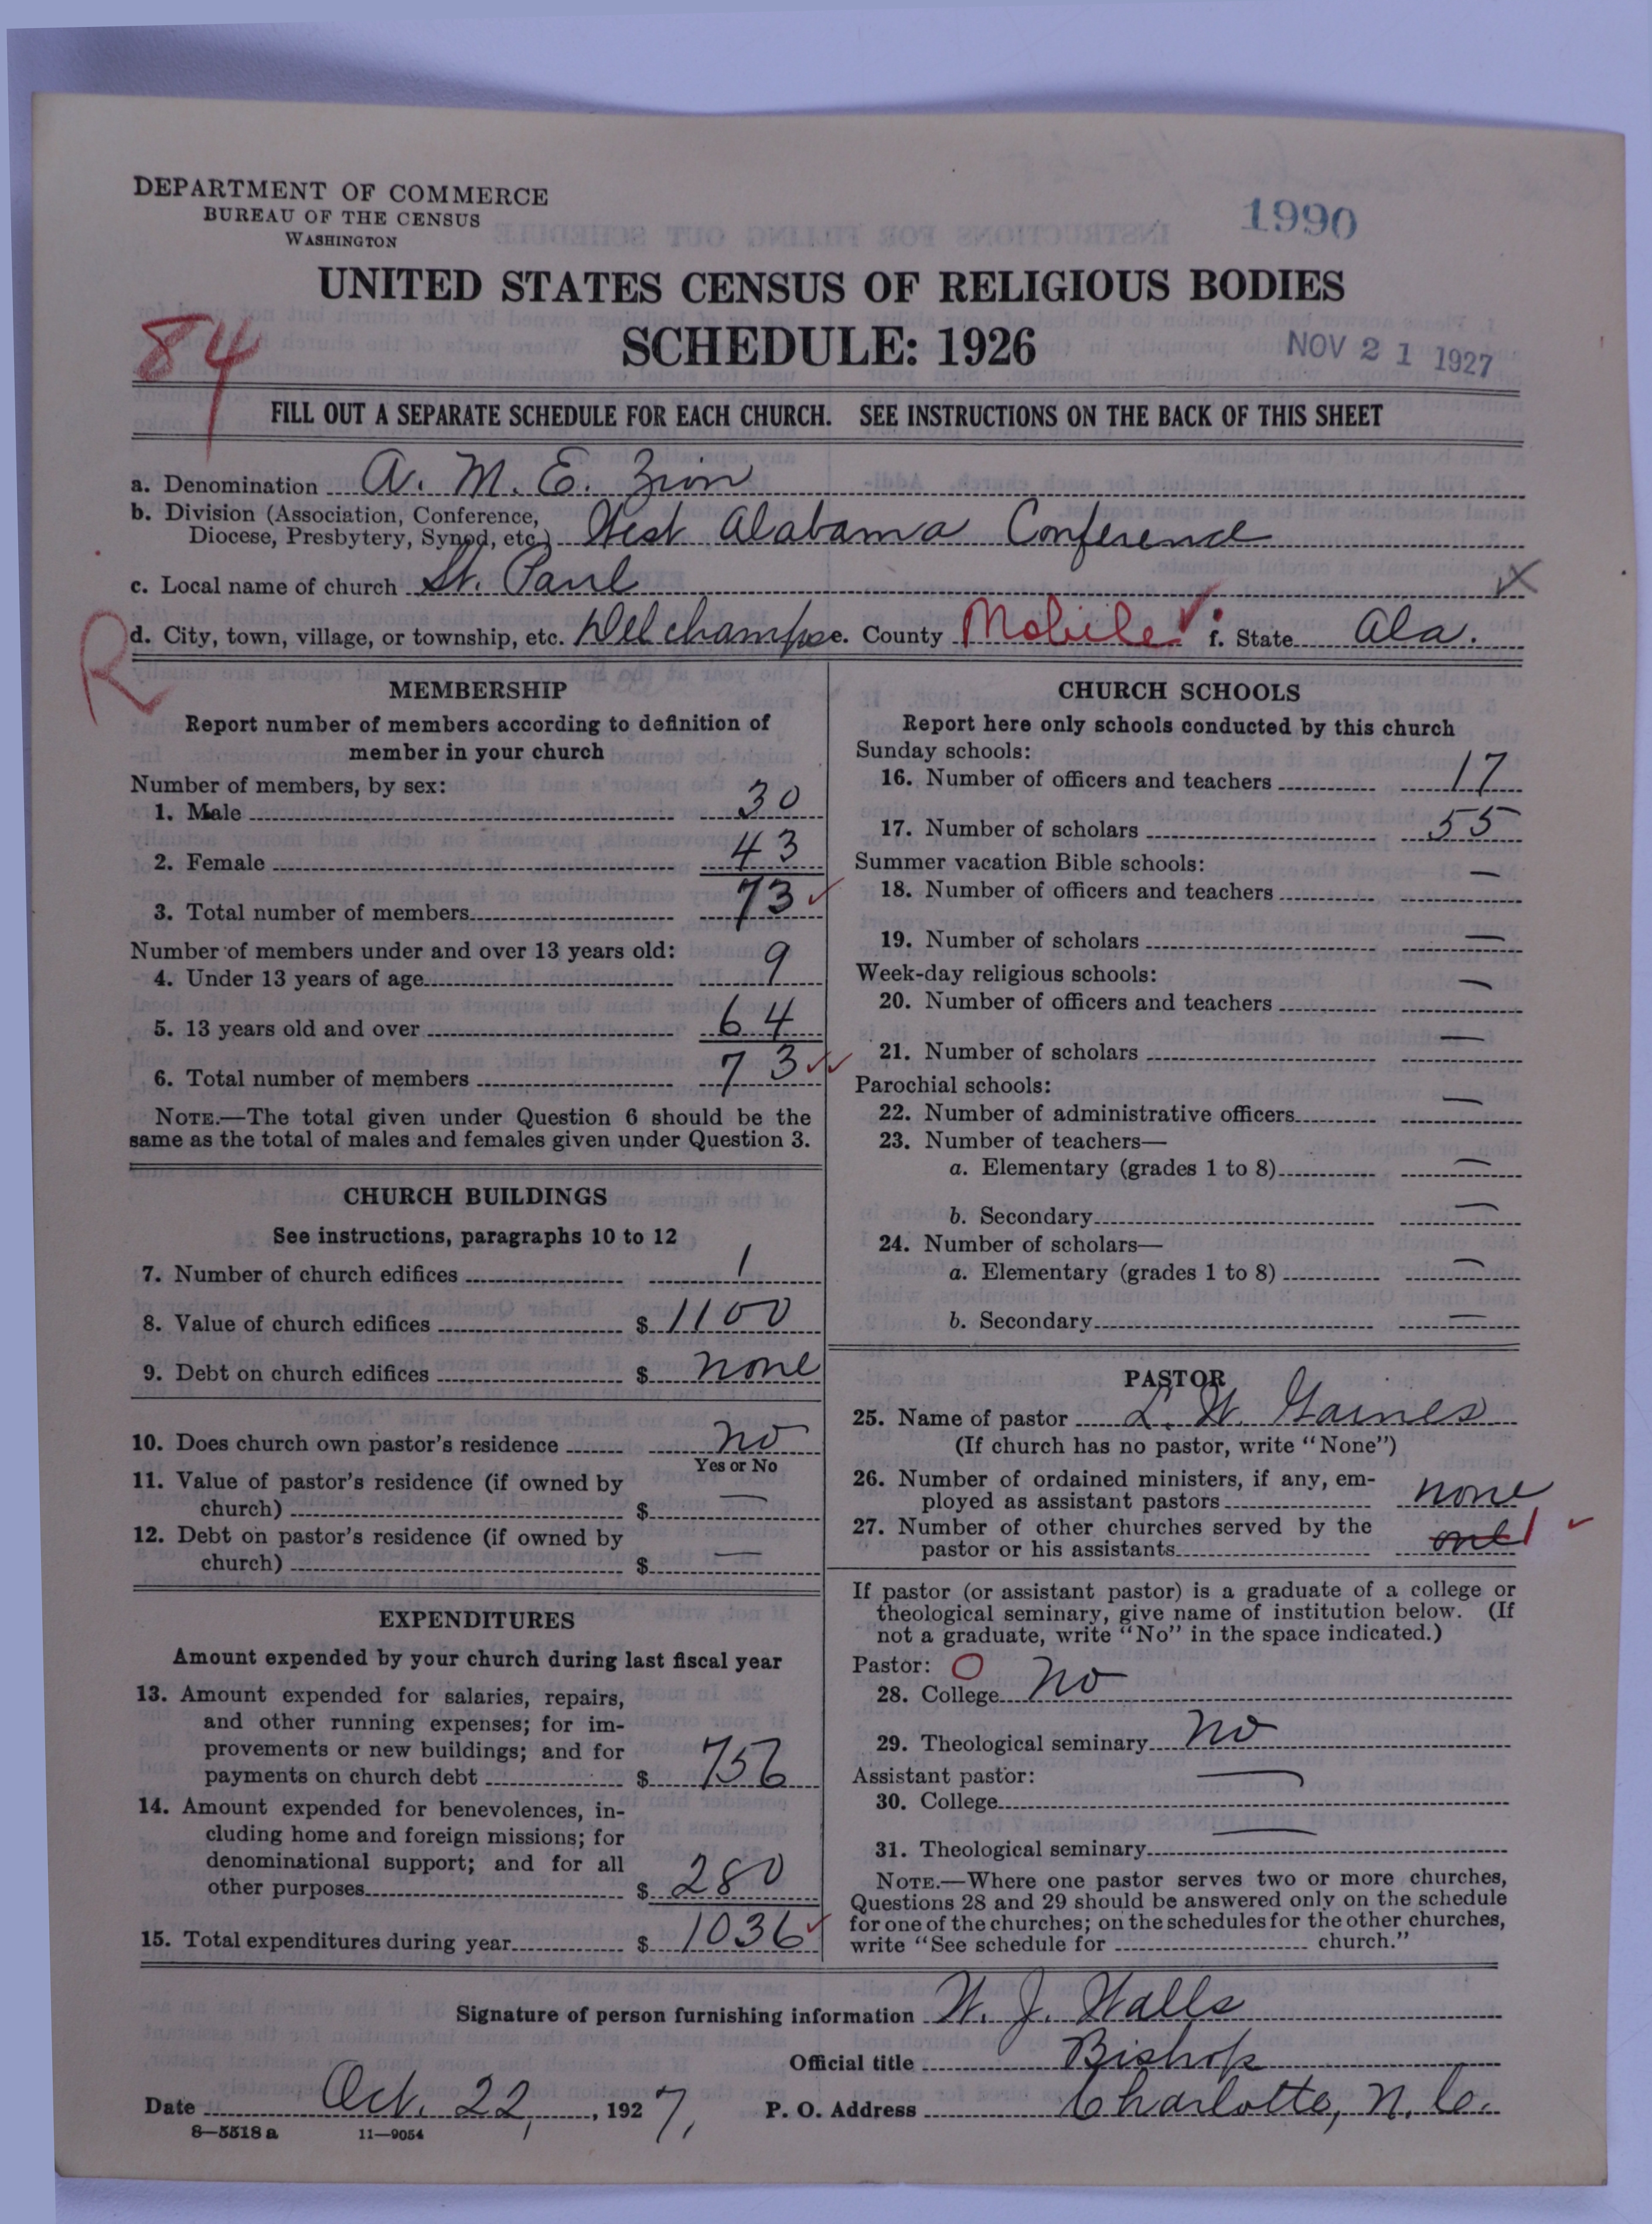 DEPARTMENT OF COMMERCE
BUREAU OF THE CENSUS
WASHINGTON
1990
UNITED STATES CENSUS OF RELIGIOUS BODIES
SCHEDULE: 1926
84
NOV 21 1927
FILL OUT A SEPARATE SCHEDULE FOR EACH CHURCH. SEE INSTRUCTIONS ON THE BACK OF THIS SHEET
a. Denomination A. M. E. Zion
b. Division (Association, Conference,
Diocese, Presbytery, Synod, etc.) West Alabama Conference
c. Local name of church St. Paul X
R
d. City, town, village, or township, etc. Delchamps e. County Mobile ✓ f. State Ala.
MEMBERSHIP
Report number of members according to definition of
member in your church
Number of members, by sex:
1. Male 30
2. Female 43
3. Total number of members 73 ✓
Number of members under and over 13 years old:
4. Under 13 years of age 9
5. 13 years old and over 64
6. Total number of members 73 ✓✓
NOTE.—The total given under Question 6 should be the
same as the total of males and females given under Question 3.
CHURCH BUILDINGS
See instructions, paragraphs 10 to 12
7. Number of church edifices 1
8. Value of church edifices $ 1100
9. Debt on church edifices $ none
10. Does church own pastor's residence no
Yes or No
11. Value of pastor's residence (if owned by
church) $ —
12. Debt on pastor's residence (if owned by
church) $ —
EXPENDITURES
Amount expended by your church during last fiscal year
13. Amount expended for salaries, repairs,
and other running expenses; for im-
provements or new buildings; and for
payments on church debt $ 756
14. Amount expended for benevolences, in-
cluding home and foreign missions; for
denominational support; and for all
other purposes $ 280
15. Total expenditures during year $ 1036 ✓
CHURCH SCHOOLS
Report here only schools conducted by this church
Sunday schools:
16. Number of officers and teachers 17
17. Number of scholars 55
Summer vacation Bible schools:
18. Number of officers and teachers —
19. Number of scholars —
Week-day religious schools:
20. Number of officers and teachers —
21. Number of scholars —
Parochial schools:
22. Number of administrative officers —
23. Number of teachers—
a. Elementary (grades 1 to 8) —
b. Secondary —
24. Number of scholars—
a. Elementary (grades 1 to 8) —
b. Secondary —
PASTOR
25. Name of pastor L. W. Gaines
(If church has no pastor, write "None")
26. Number of ordained ministers, if any, em-
ployed as assistant pastors none
27. Number of other churches served by the
pastor or his assistants one 1 ✓
If pastor (or assistant pastor) is a graduate of a college or
theological seminary, give name of institution below. (If
not a graduate, write "No" in the space indicated.)
Pastor: O
28. College No
29. Theological seminary No
Assistant pastor:
30. College —
31. Theological seminary —
NOTE.—Where one pastor serves two or more churches,
Questions 28 and 29 should be answered only on the schedule
for one of the churches; on the schedules for the other churches,
write "See schedule for church."
Signature of person furnishing information W. J. Walls
Official title Bishop
Date Oct. 22, 1927, P. O. Address Charlotte, N. C.
8—5518 a 11—9054